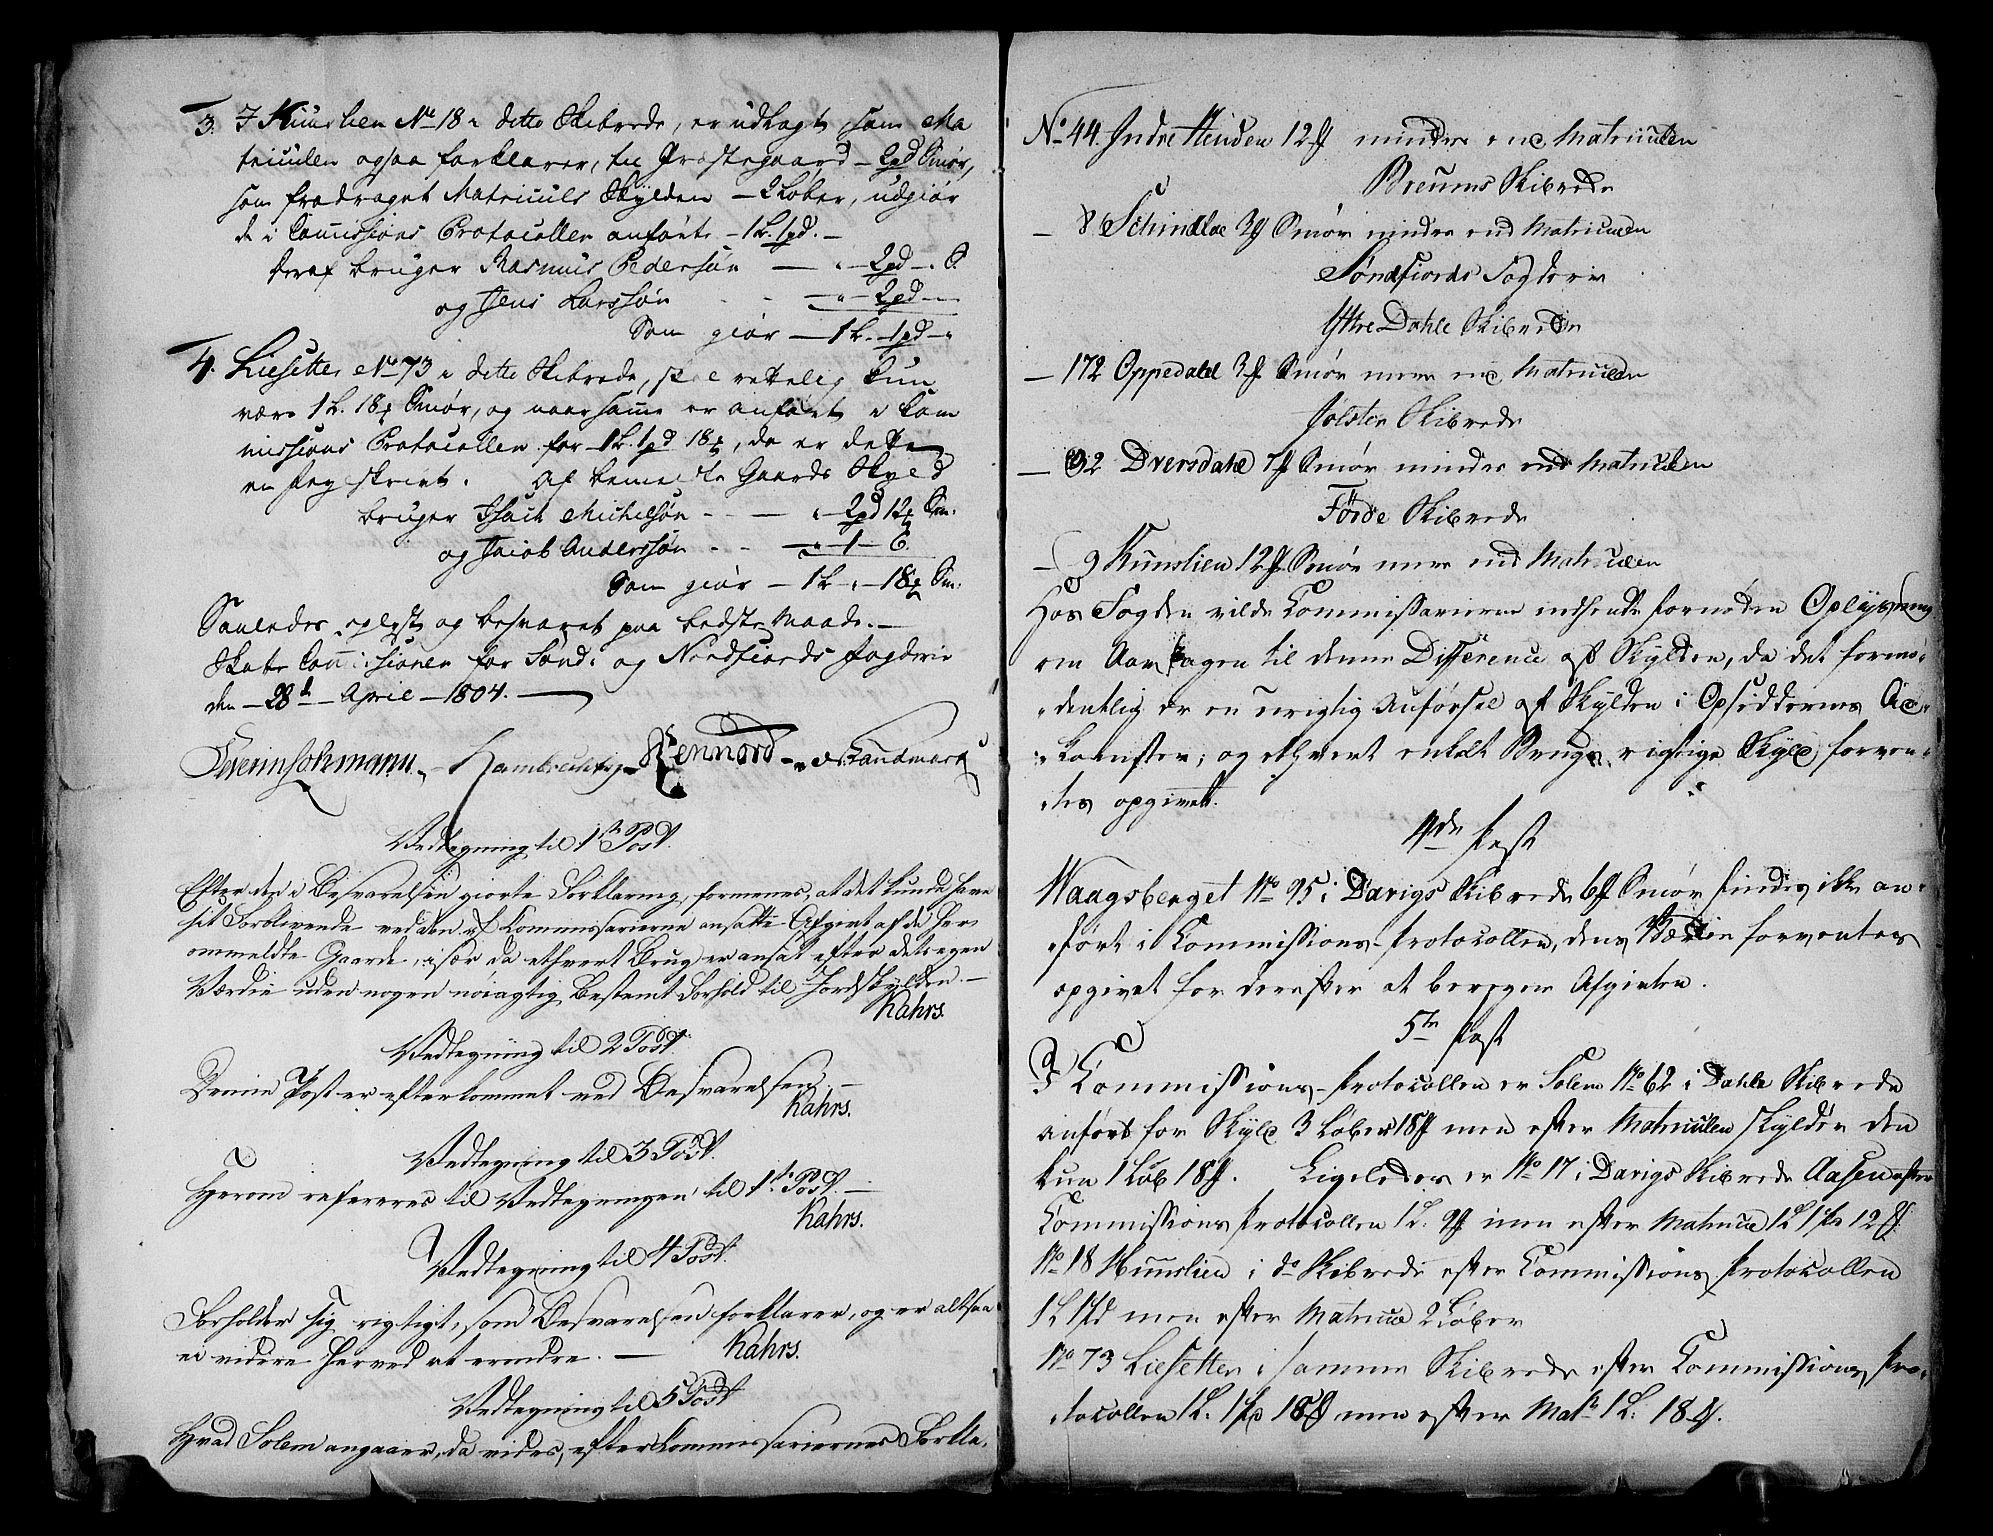 3. I Kunslien No 18 i dette Skibrede, er udlagt som Ma
triculen ogsaa forklarer, til Præstegaard - 2pd Smør,
som fradraget Matriculs Skylden - 2 Løber, udgiør
de i Commissions Protocollen anførte - 1 L. 1pd. -
Deraf bruger Rasmus Pedersøn - " - 2pd - " S.
og Jens Larssøn - " - 2pd -
Som giør - 1 L. - 1pd - "
4. Liesetter No 73 i dette Skibrede, skal rettelig kun
være 1 L. 18 Smør, og naar samme er anført i Com
missions Protocollen for 1 L. 1pd 18, da er dette
en Feyl skrivt. Af bemelte Gaards Skyld
bruger Isach Michelsøn - " 2pd 12 Sm:
og Jacob Anderssøn - " - 1 - 6.
Som giør - 1 L " - 18 Sm.
Saaledes oplyst og besvaret paa bedste Maade. -
Skatte Commissionen for Sønd- og Nordfiords Fogderie
den 28d April - 1804. -
Landmark
Vedtegning til 1ste Post.
Efter den i Besvarelsen giorte Forklaring, formenes, at det kunde have
sit Forblivende ved den af Kommissariere ansatte Afgivt af de her
ommeldte Gaarde, især da ethvert Brug er ansat efter dets egen
Værdie uden nogen nøiagtig Bestemt Forhold til Jordskylden. -
Kahrs.
Vedtegning til 2 Post.
Denne Post er efterkommet ved Besvarelsen. -
Kahrs.
Vedtegning til 3 Post.
Herom refereres til Vedtegningen til 1ste Post. -
Kahrs.
Vedtegning til 4 Post.
Forholder sig rigtigt, som Besvarelsen forklarer, og er altsaa
ei videre herved at erindre. -
Kahrs.
Vedtegning til 5 Post
Hvad Solem angaaer, da vides, efter Kommissariernes Forkla-
No 44. Indre Hinden 12 mindre end Matriculen
Breums Skibrede
- 8 Schindloe 3 Smør mindre end Matriculen
Søndfiords Fogderie
Yttre Dahle Skibrede
- 172 Oppedahl 3 Smør mere end Matriculen
Jølster Skibrede
- 92 Dversdahl Smør mindre end Matriculen
Førde Skibrede
- 9 Kunslien 12 Smør mere end Matriculen
Hos Fogden vilde Commissarierne indhente fornøden Oplysning
om Aarsagen til denne Difference af Skylden, da det formo-
dentlig er en urigtig Anførsel af Skylden i Opsiddernes
og ethvert enkelt Brugs rigtige Skyld forven-
tes opgivet.
4de Post
Waagsberget No 95 i Davigs Skibrede 6 Smør findes ikke an-
ført i Commissions-Protocollen, dens Værdie forventes
opgivet for derefter at beregne Afgivten.
5te Post
I Commissions-Protocollen er Solem No 62 i Dahle Skibrede
anført for Skyld 3 Løber 18 men efter Matriculen skylder den
kun 1 Løb 18. Ligeledes er No 17 i Davigs Skibrede Aasen efter
Commissions Protocollen 1 L. 9 men efter Matricul 1 L 1 pd 12
No 18 Hunslien i do Skibrede efter Commissions Protocollen
1 L 1 pd men efter Matricul 2 Løber
No 73 Liesetter i samme Skibrede efter Commissions Pro-
tocollen 1 L. 1 pd 18 men efter Matr 1 L. 18.